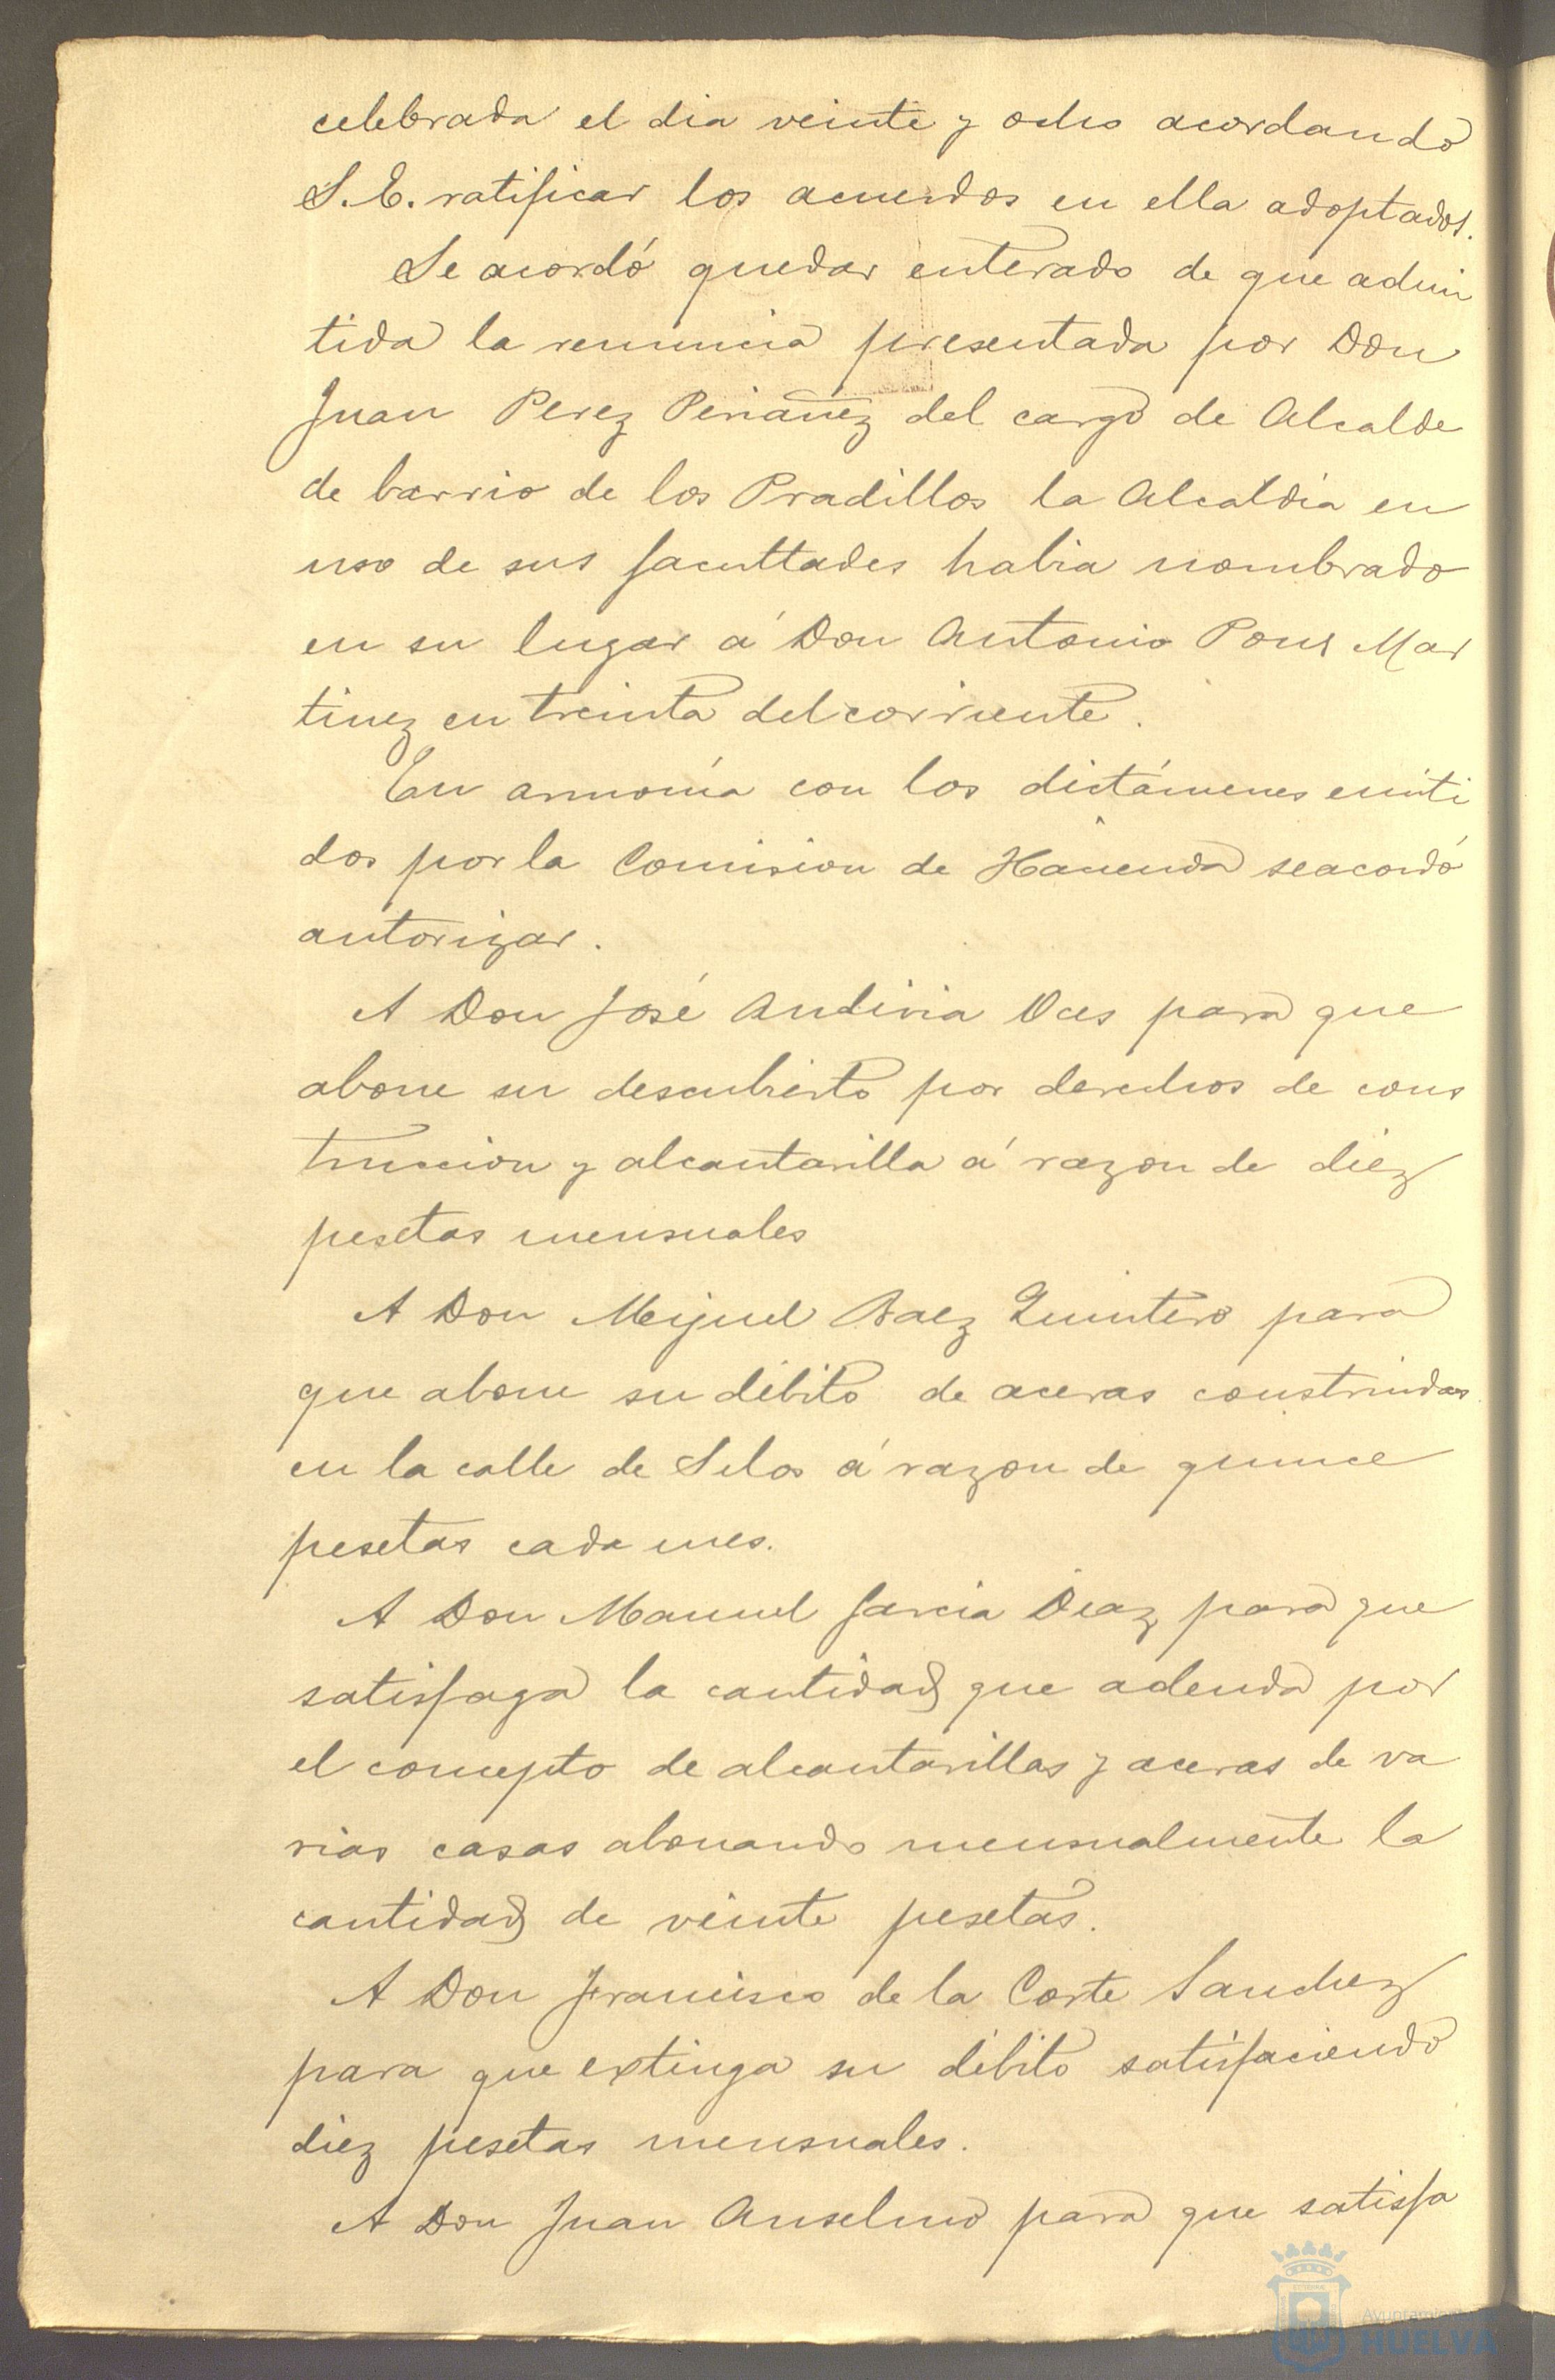 celebrada el dia veinte y ocho acordando
S. E. ratificar los acuerdos en ella adoptados.
Se acordó quedar enterado de que admi
tida la renuncia presentada por Don
Juan Perez Periañez del cargo de Alcalde
de barrio de los Pradillos la Alcaldia en
uso de sus facultades habia nombrado
en su lugar á Don Antonio Pons Mar
tinez en treinta del corriente.
En armonía con los dictámenes emiti
dos por la Comision de Hacienda se acordó
autorizar.
A Don José Andivia Oces para que
abone su descubierto por derechos de cons
truccion y alcantarilla á razon de diez
pesetas mensuales
A Don Miguel Baez Quintero para
que abone su débito de aceras construidas
en la calle de Silos á razon de quince
pesetas cada mes.
A Don Manuel Garcia Diaz para que
satisfaga la cantidad que adeuda por
el concepto de alcantarillas y aceras de va
rias casas abonando mensualmente la
cantidad de veinte pesetas.
A Don Francisco de la Corte Sanchez
para que extinga su débito satisfaciendo
diez pesetas mensuales.
A Don Juan Anselmo para que satisfa
Ayuntamiento
HUELVA